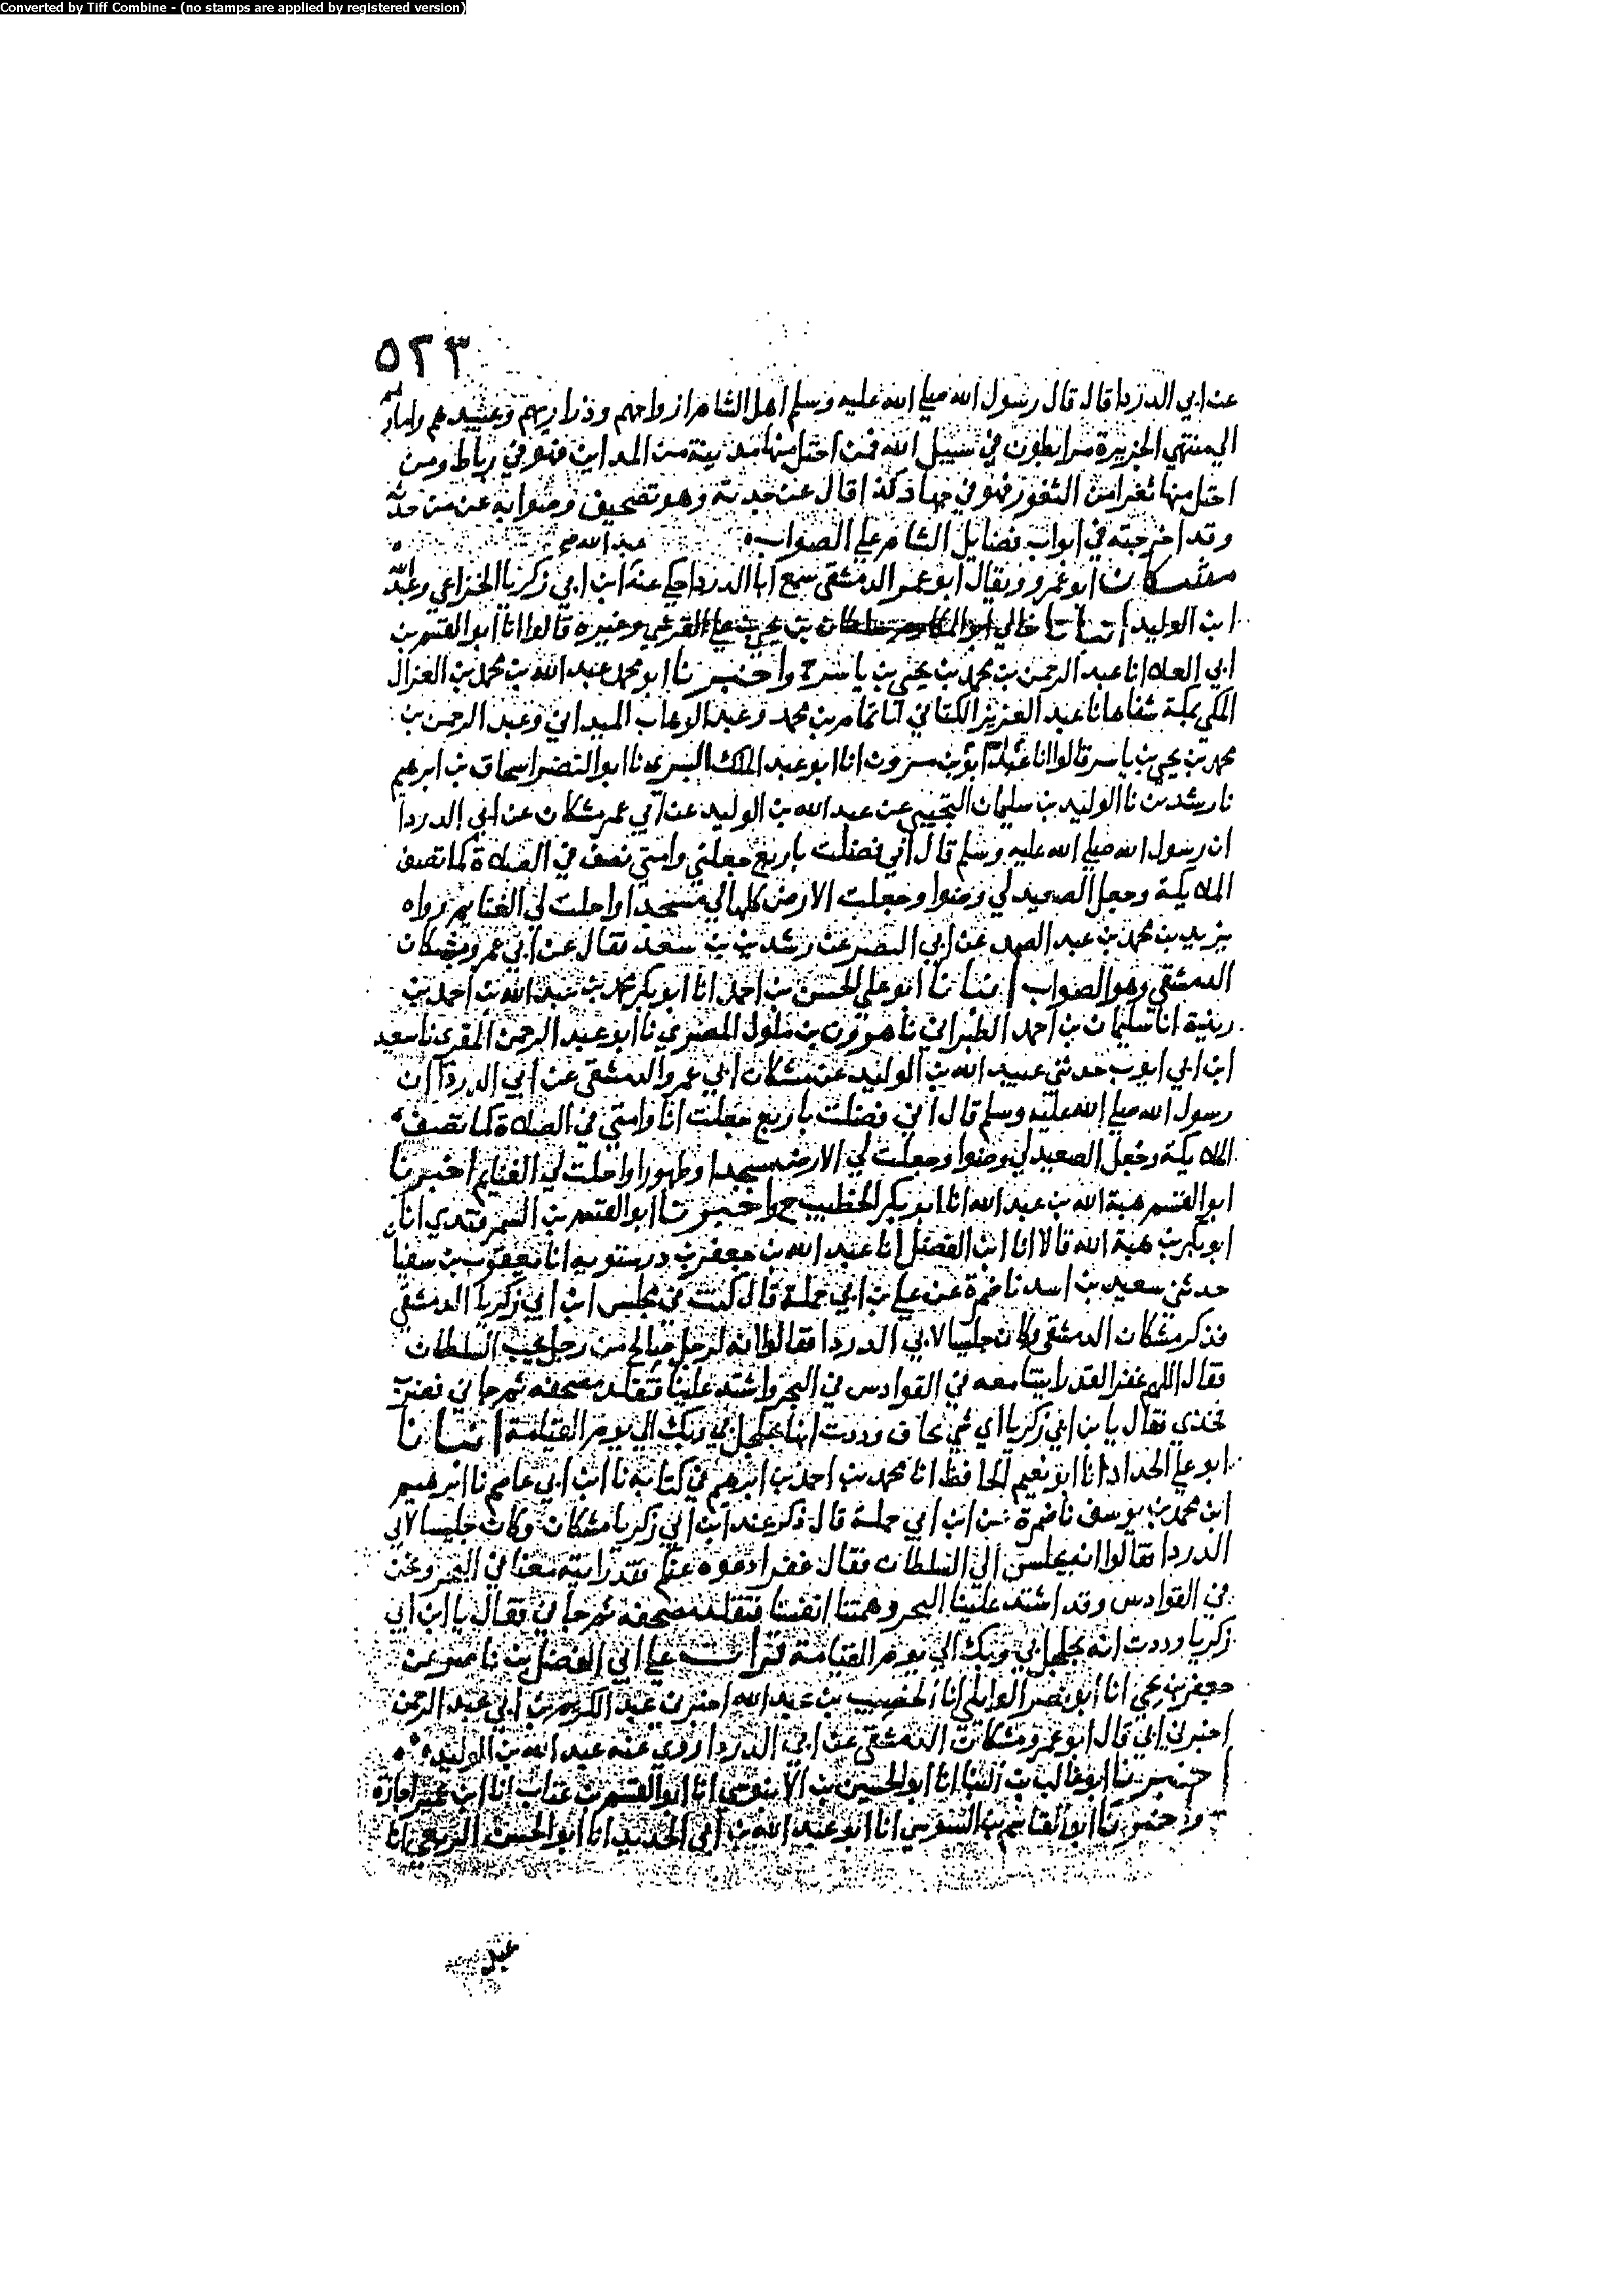 Converted by Tiff Combine - (no stamps are applied by registered version)
٥٢٣
عن ابي الدردا قال قال رسول الله صلى الله عليه وسلم اهل الشام وازواجهم وذراريهم وعبيدهم واماوهم
الى منتهى الجزيرة مرابطون في سبيل الله فمن احتل منها مدينة من المداين فهو في رباط ومن
احتل منها ثغرا من الثغور فهو في جهاد كذا قال عن حدثه وهو تصحيف وصوابه عن من حدثه
وقد اخرجته في ابواب فضايل الشام على الصواب
مشكان ابو عمرو ويقال ابو عمر الدمشقي سمع ابا الدردا حكى عنه ابن ابي زكريا الخزاعي وعبد الله
ابن الوليد انبانا خالي ابو المكارم سلطان بن يحيى بن علي القرشي وغيره قالوا انا ابو القسم بن
ابي العلا انا عبد الرحمن بن محمد بن يحيى بن ياسر ح واخبرنا ابو محمد عبد الله بن محمد بن الغزال
المكي بمكة شفاها انا عبد العزيز الكتاني انا تمام بن محمد وعبد الوهاب الميداني وعبد الرحمن بن
محمد بن يحيى بن ياسر قالوا انا ابو عبد الملك البسري نا ابو النضر اسحاق بن ابرهيم
نا رشدين نا الوليد بن سليمان التجيبي عن عبد الله بن الوليد عن ابي عمر مشكان عن ابي الدردا
ان رسول الله صلى الله عليه وسلم قال اني فضلت باربع جعلني وامتي نصف في الصلاة كما تصف
الملايكة وجعل الصعيد لي وضوا وجعلت الارض كلها لي مسجدا واحلت لي الغنايم رواه
يزيد بن محمد بن عبد الصمد عن ابي النضر عن رشدين بن سعد فقال عن ابي عمرو مشكان
الدمشقي وهو الصواب انبانا ابو علي الحسن بن احمد انا ابو بكر محمد بن عبد الله بن احمد بن
ريذة انا سليمان بن احمد الطبراني نا هرون بن ملول المصري نا ابو عبد الرحمن المقرى نا سعيد
ابن ابي ايوب حدثني عبيد الله بن الوليد عن مشكان ابي عمرو الدمشقي عن ابي الدردا ان
رسول الله صلى الله عليه وسلم قال اني فضلت باربع جعلت انا وامتي في الصلاة كما تصف
الملايكة وجعل الصعيد لي وضوا وجعلت لي الارض مسجدا وطهورا واحلت لي الغنايم اخبرنا
ابو القسم هبة الله بن عبد الله انا ابو بكر الخطيب ح واخبرنا ابو القسم بن السمرقندي انا
ابو بكر بن هبة الله قالا انا ابن الفضل انا عبد الله بن جعفر بن درستويه انا يعقوب بن سفيان
حدثني سعيد بن اسد نا ضمرة عن علي بن ابي حملة قال كنت في مجلس ابن ابي زكريا الدمشقي
فذكر مشكان الدمشقي وكان جليسا لابي الدردا فقالوا انه لرجل صالح من رجل يحب السلطان
فقال اللهم غفرا لقد رايتنا معه في القوادس في البحر واشتد علينا فتقلد مصحفه ثم جاني فضرب
فخذي فقال يا بن ابي زكريا اي شي تخاف وددت انها تجلجل بي وبك الى يوم القيامة انبانا
ابو علي الحداد انا ابو نعيم الحافظ انا محمد بن احمد بن ابرهيم في كتابه نا ابن ابي عاصم نا ابرهيم
ابن محمد بن يوسف نا ضمرة عن ابن ابي حملة قال ذكر عند ابن ابي زكريا مشكان وكان جليسا لابي
الدردا فقالوا انه يجلس الى السلطان فقال غفرا دعوه عنكم فقد رايته معنا في البحر ونحن
في القوادس وقد اشتد علينا البحر وهمتنا انفسنا فتقلد مصحفه ثم جاني فقال يا ابن ابي
زكريا وددت انه تجلجل بي وبك الى يوم القيامة قرات على ابي الفضل بن ناصر عن
جعفر بن يحيى انا ابو نصر الوايلي انا الخصيب بن عبد الله اخبرني عبد الكريم بن ابي عبد الرحمن
اخبرني ابي قال ابو عمرو مشكان الدمشقي عن ابي الدردا روى عنه عبد الله بن الوليد
اخبرنا ابو غالب بن البنا انا ابو الحسين بن الابنوسي انا ابو القسم بن عتاب انا ابن عمير اجازة
ح واخبرنا ابو القاسم بن السوسي انا ابو عبد الله بن ابي الحديد انا ابو الحسن الربعي انا
عبد